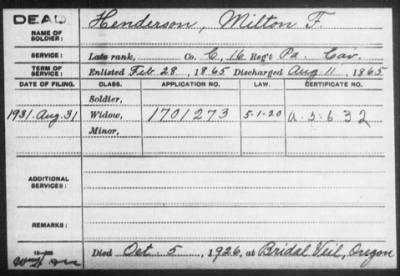 DEAD
NAME OF SOLDIER: Henderson, Milton F.
SERVICE: Late rank, Co. C, 16 Reg't Pa. Cav.
TERM OF SERVICE: Enlisted Feb 28, 1865 Discharged Aug 11, 1865
DATE OF FILING. CLASS. APPLICATION NO. LAW. CERTIFICATE NO.
Soldier,
1931. Aug. 31 Widow, 1701273 5-1-20 a-5-632
Minor,
ADDITIONAL SERVICES:
REMARKS:
Died Oct. 5, 1926, at Bridal Veil, Oregon